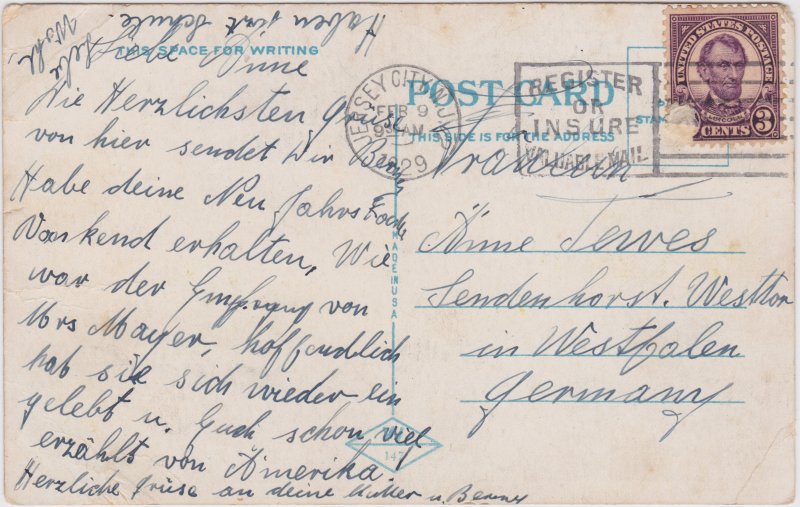 Haben jetzt Schule.
Lebe
Wohl
THIS SPACE FOR WRITING
Liebe Änne
Die Herzlichsten Grüse
von hier sendet Dir
Habe deine Neu Jahrs Karte
Dankend erhalten, Wie
war der Empfang von
Mrs Mayer, hoffendlich
hat sie sich wieder ein
gelebt u. Euch schon viel
erzählt von Amerika.
Herzliche Grüse an deine Mutter u.
POST CARD
THIS SIDE IS FOR THE ADDRESS
JERSEY CITY, N.J.
FEB 9
9 AM
1929
REGISTER
OR
INSURE
VALUABLE MAIL
UNITED STATES POSTAGE
LINCOLN
3 CENTS 3
STAM
Fräulein
Änne Tewes
Sendenhorst. Westtor
in Westfalen
Germany
MADE IN USA